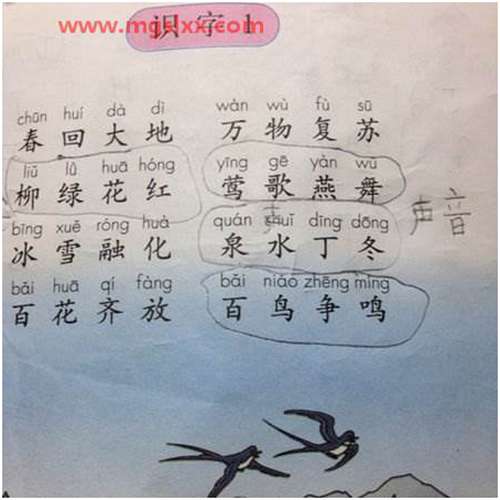 www.mgslxx.com
识字1
chūn huí dà dì wàn wù fù sū
春回大地 万物复苏
liǔ lǜ huā hóng yīng gē yàn wǔ
柳绿花红 莺歌燕舞
bīng xuě róng huà quán shuǐ dīng dōng
冰雪融化 泉水丁冬 声音
bǎi huā qí fàng bǎi niǎo zhēng míng
百花齐放 百鸟争鸣